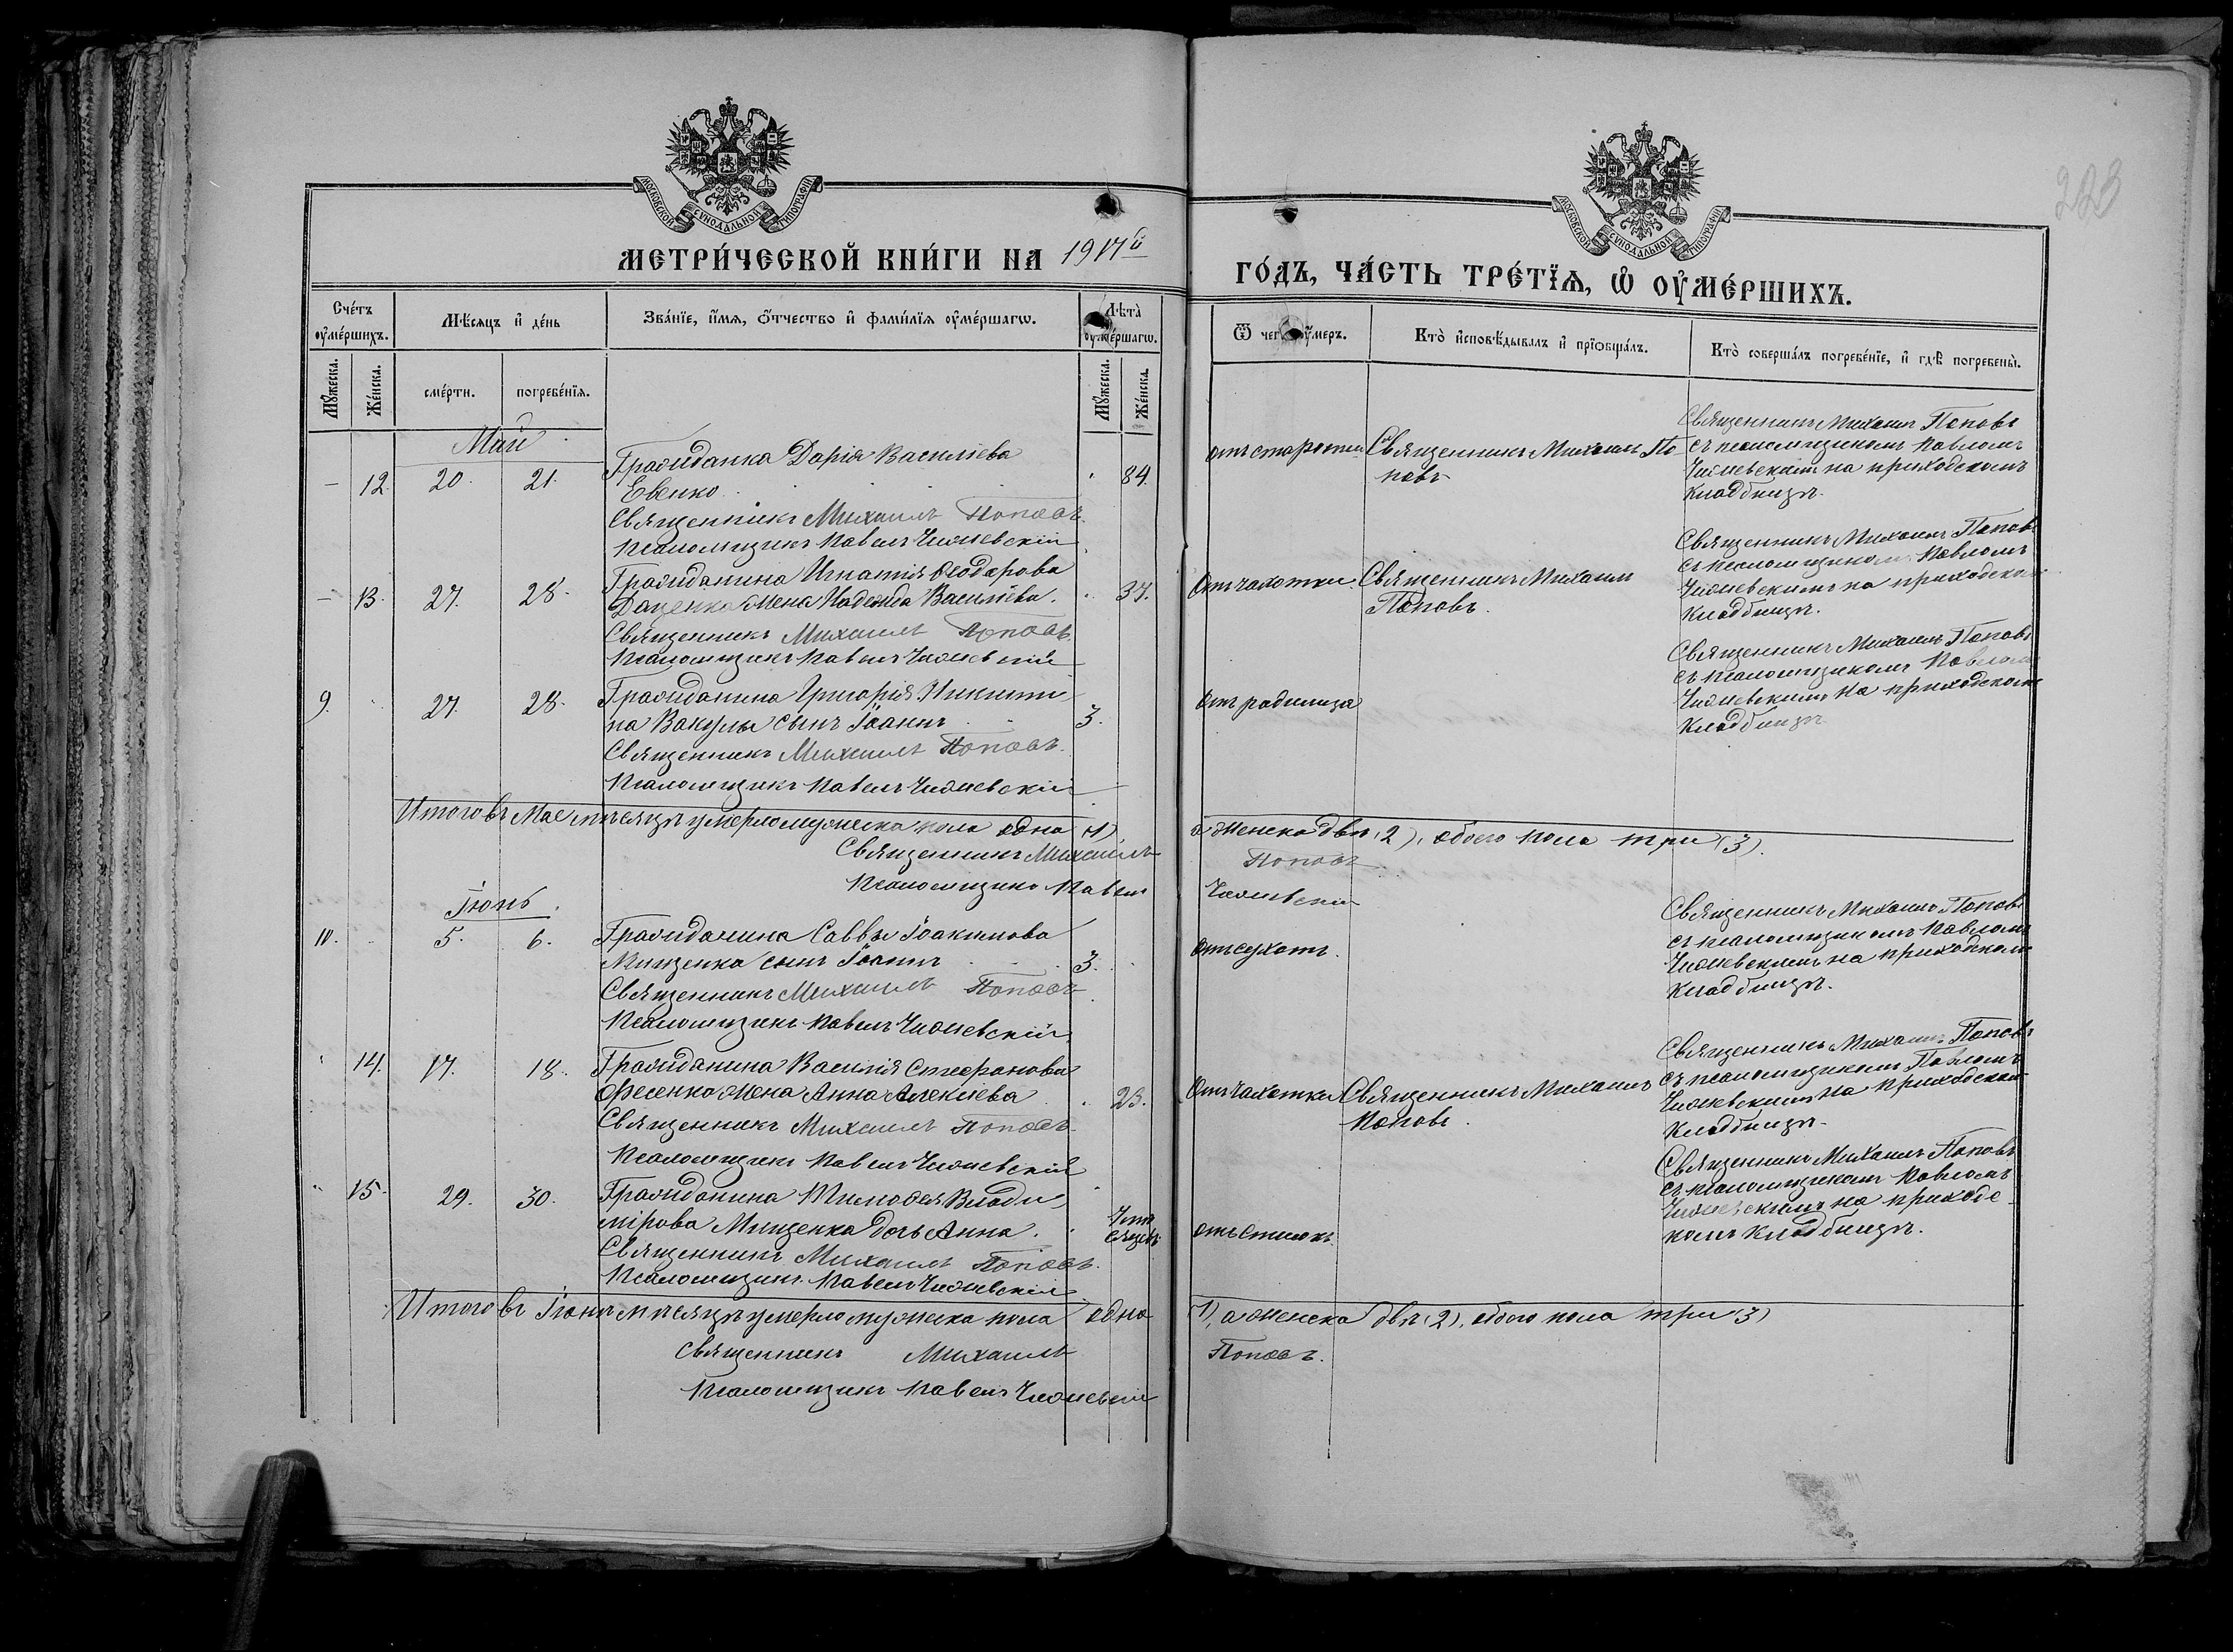 МОСКОВСКОЙ СУНОДАЛЬНОЙ ТИПОГРАФІИ
МОСКОВСКОЙ СУНОДАЛЬНОЙ ТИПОГРАФІИ
223
МЕТРИ́ЧЕСКОЙ КНИ́ГИ НА 1917й
ГО́ДЪ, ЧА́СТЬ ТРЕ́ТЇѦ, Ѡ҆ ОУ҆МЕ́РШИХЪ.
Сче́тъ оу҆ме́ршихъ.
Мѣ́сяцъ и҆ де́нь
Зва́нїе, и҆́мѧ, ѻ҆́тчество и҆ фами́лїѧ оу҆ме́ршагѡ.
Лѣ̀та оу҆ме́ршагѡ.
Ѿ чего̀ оу҆́меръ.
Кто̀ и҆сповѣ́дывалъ и҆ прїѡбща́лъ.
Кто̀ соверша́лъ погребе́нїе, и҆ гдѣ̀ погребены̀.
Мꙋ́жеска.
Же́нска.
сме́рти.
погребе́нїѧ.
Мꙋ́жеска.
Же́нска.
Май
12. 20. 21. Гражданка Дарія Василіева
Евенко 84.
Священникъ Михаилъ Поповъ.
Псаломщикъ Павелъ
отъ старости
Священникъ Михаилъ По
повъ
Священникъ Михаилъ Поповъ
съ псаломщикомъ Павломъ
на приходскомъ
кладбищѣ.
13. 27. 28. Гражданина Игнатія Ѳеодорова
Даценка жена Надежда Василіева. 37.
Священникъ Михаилъ Поповъ.
Псаломщикъ Павелъ
отъ чахотки.
Священникъ Михаилъ
Поповъ.
Священникъ Михаилъ Поповъ
съ псаломщикомъ Павломъ
на приходскомъ
кладбищѣ.
9. 27. 28. Гражданина Григорія Никити
на Вакулы сынъ Іоаннъ 3.
Священникъ Михаилъ Поповъ.
Псаломщикъ Павелъ
отъ родимца
Священникъ Михаилъ Поповъ
съ псаломщикомъ Павломъ
на приходскомъ
кладбищѣ
Итого въ Маѣ мѣсяцѣ умерло мужеска пола одна (1)
а женска двѣ (2), обоего пола три (3).
Священникъ Михаилъ Поповъ
Псаломщикъ Павелъ
Іюнь.
10. 5. 6. Гражданина Саввы Іоакимова
Мищенка сынъ Іоаннъ 3.
Священникъ Михаилъ Поповъ
Псаломщикъ Павелъ
отъ сухотъ.
Священникъ Михаилъ Поповъ
съ псаломщикомъ Павломъ
на приходскомъ
кладбищѣ.
14. 17. 18. Гражданина Василія Стефанова
Фесенко жена Анна Алексіева 23.
Священникъ Михаилъ Поповъ
Псаломщикъ Павелъ
отъ чахотки
Священникъ Михаилъ
Поповъ.
Священникъ Михаилъ Поповъ
съ псаломщикомъ Павломъ
на приходскомъ
кладбищѣ.
15. 29. 30. Гражданина Тимоѳея Влади
мірова Мищенка дочь Анна.
Священникъ Михаилъ Поповъ.
Псаломщикъ Павелъ
Священникъ Михаилъ Поповъ
съ псаломщикомъ Павломъ
на приходс
комъ кладбищѣ.
Итого въ Іюнѣ мѣсяцѣ умерло мужеска пола одна
(1), а женска двѣ (2), обоего пола три (3)
Священникъ Михаилъ Поповъ.
Псаломщикъ Павелъ